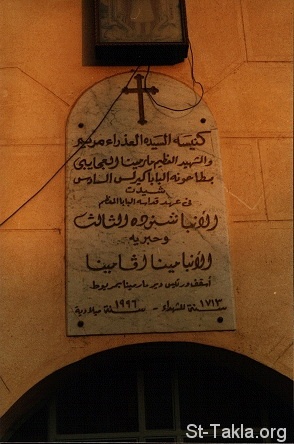 كنيسة السيدة العذراء مريم
والشهيد العظيم مارمينا العجايبى
بطاحونه البابا كيرلس السادس
شيدت
فى عهد قداسة البابا المعظم
الأنبا شنوده الثالث
وحبريه
الأنبا مينا آفامينا
أسقف ورئيس دير مارمينا بمريوط
١٧١٣ سنة للشهداء - سنة ميلادية ١٩٩٦
St-Takla.org